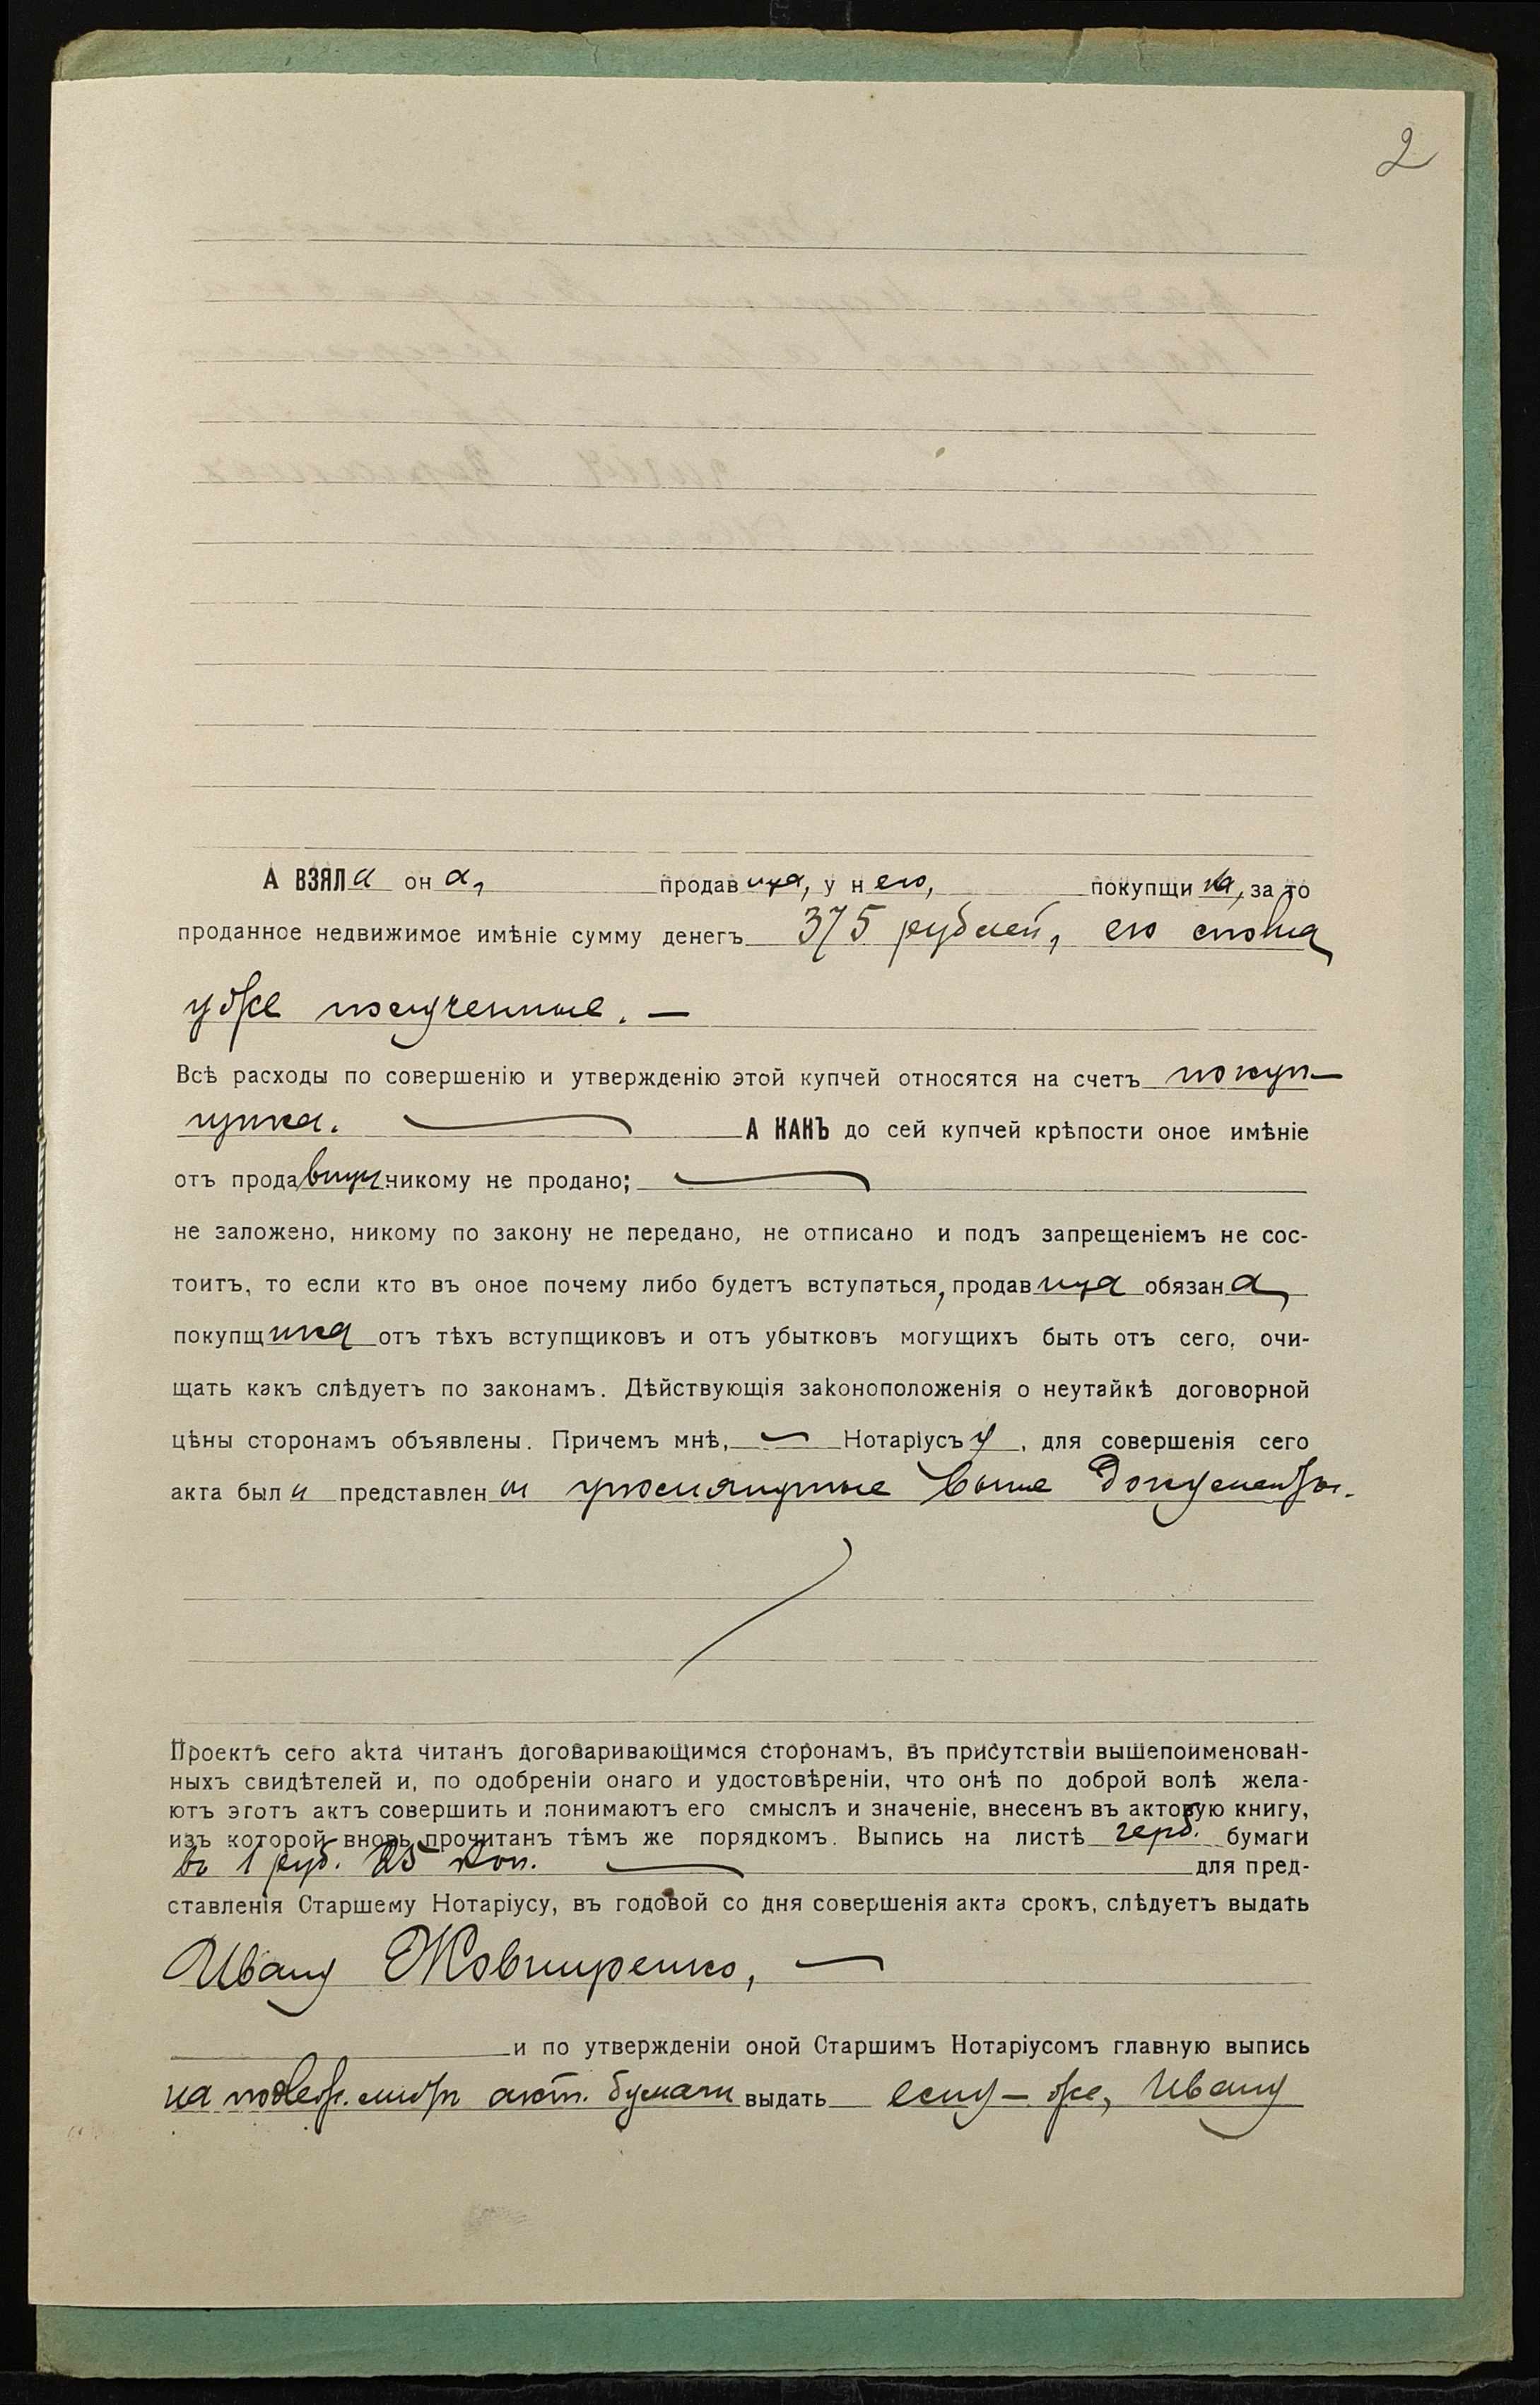 2
А ВЗЯЛа она, продавица, у него, покупщика, за то
проданное недвижимое имѣніе сумму денегъ 375 рублей, ею сполна
уже полученные. —
Всѣ расходы по совершенію и утвержденію этой купчей относятся на счетъ покуп-
щика. А КАКЪ до сей купчей крѣпости оное имѣніе
отъ продавицы никому не продано;
не заложено, никому по закону не передано, не отписано и подъ запрещеніемъ не сос-
тоитъ, то если кто въ оное почему либо будетъ вступаться, продавица обязана,
покупщика отъ тѣхъ вступщиковъ и отъ убытковъ могущихъ быть отъ сего, очи-
щать какъ слѣдуетъ по законамъ. Дѣйствующія законоположенія о неутайкѣ договорной
цѣны сторонамъ объявлены. Причемъ мнѣ, — Нотаріусъу, для совершенія сего
акта были представлены упомянутые выше документы.
Проектъ сего акта читанъ договаривающимся сторонамъ, въ присутствіи вышепоименован-
ныхъ свидѣтелей и, по одобреніи онаго и удостовѣреніи, что онѣ по доброй волѣ жела-
ютъ этотъ актъ совершить и понимаютъ его смыслъ и значеніе, внесенъ въ актовую книгу,
изъ которой вновь прочитанъ тѣмъ же порядкомъ. Выпись на листѣ герб. бумаги
въ 1 руб. 25 коп. для пред-
ставленія Старшему Нотаріусу, въ годовой со дня совершенія акта срокъ, слѣдуетъ выдать
Ивану Жовниренко, —
и по утвержденіи оной Старшимъ Нотаріусомъ главную выпись
на акт. бумаги выдать ему-же, Ивану